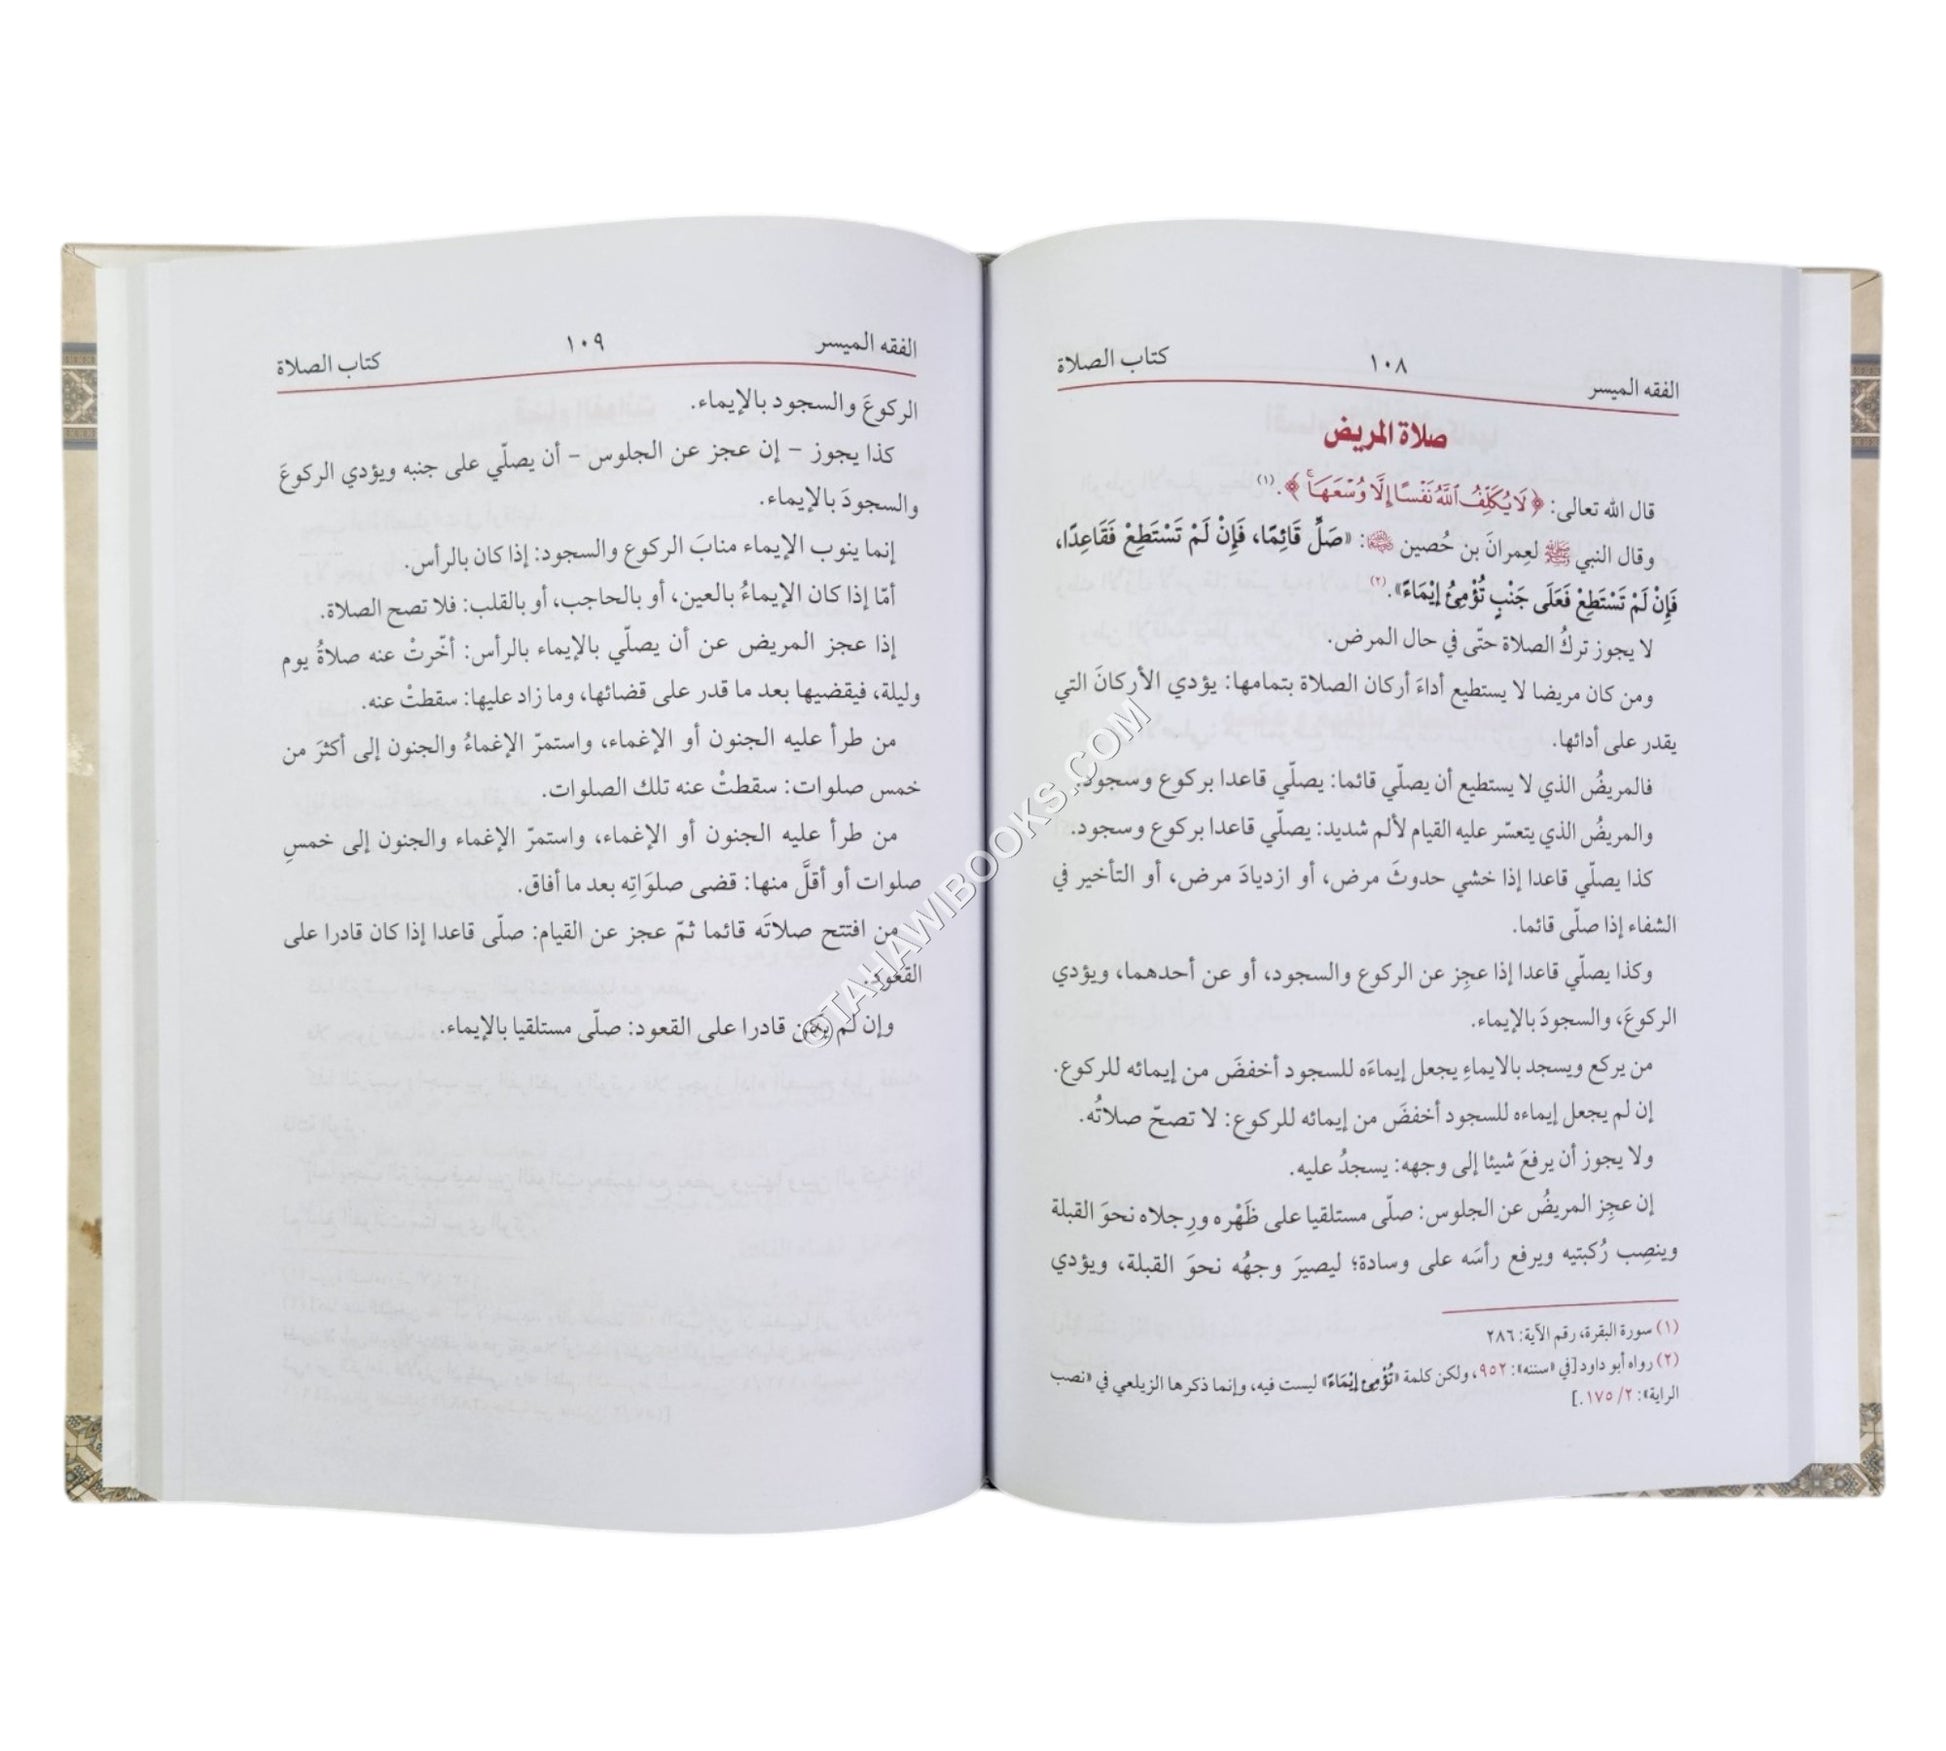 الفقه الميسر
١٠٨
كتاب الصلاة
صلاة المريض
قال الله تعالى: ﴿لَا يُكَلِّفُ ٱللَّهُ نَفْسًا إِلَّا وُسْعَهَا ۚ﴾.(١)
وقال النبي ﷺ لعِمرانَ بن حُصين رضي الله عنه: «صَلِّ قَائِمًا، فَإِنْ لَمْ تَسْتَطِعْ فَقَاعِدًا،
فَإِنْ لَمْ تَسْتَطِعْ فَعَلَى جَنْبٍ تُؤْمِئُ إِيْمَاءً».(٢)
لا يجوز تركُ الصلاة حتّى في حال المرض.
ومن كان مريضا لا يستطيع أداءَ أركان الصلاة بتمامها: يؤدي الأركانَ التي
يقدر على أدائها.
فالمريضُ الذي لا يستطيع أن يصلّي قائما: يصلّي قاعدا بركوع وسجود.
والمريضُ الذي يتعسّر عليه القيام لألم شديد: يصلّي قاعدا بركوع وسجود.
كذا يصلّي قاعدا إذا خشي حدوثَ مرض، أو ازديادَ مرض، أو التأخير في
الشفاء إذا صلّى قائما.
وكذا يصلّي قاعدا إذا عجِز عن الركوع والسجود، أو عن أحدهما، ويؤدي
الركوعَ، والسجودَ بالإيماء.
من يركع ويسجد بالايماءِ يجعل إيماءَه للسجود أخفضَ من إيمائه للركوع.
إن لم يجعل إيماءه للسجود أخفضَ من إيمائه للركوع: لا تصحّ صلاتُه.
ولا يجوز أن يرفعَ شيئا إلى وجهه: يسجدُ عليه.
إن عجِز المريضُ عن الجلوس: صلّى مستلقيا على ظَهْره ورِجلاه نحوَ القبلة
وينصِب رُكبتيه ويرفع رأسَه على وسادة؛ ليصيرَ وجهُه نحوَ القبلة، ويؤدي
(١) سورة البقرة، رقم الآية: ٢٨٦
(٢) رواه أبو داود [في «سننه»: ٩٥٢، ولكن كلمة «تُؤْمِئُ إِيْمَاءً» ليست فيه، وإنما ذكرها الزيلعي في «نصب
الراية»: ٢/ ١٧٥.]
الفقه الميسر
١٠٩
كتاب الصلاة
الركوعَ والسجود بالإيماء.
كذا يجوز – إن عجز عن الجلوس – أن يصلّي على جنبه ويؤدي الركوعَ
والسجودَ بالإيماء.
إنما ينوب الإيماء منابَ الركوع والسجود: إذا كان بالرأس.
أمّا إذا كان الإيماءُ بالعين، أو بالحاجب، أو بالقلب: فلا تصح الصلاة.
إذا عجز المريض عن أن يصلّي بالإيماء بالرأس: أخّرتْ عنه صلاةُ يوم
وليلة، فيقضيها بعد ما قدر على قضائها، وما زاد عليها: سقطتْ عنه.
من طرأ عليه الجنون أو الإغماء، واستمرّ الإغماءُ والجنون إلى أكثرَ من
خمس صلوات: سقطتْ عنه تلك الصلوات.
من طرأ عليه الجنون أو الإغماء، واستمرّ الإغماء والجنون إلى خمسِ
صلوات أو أقلَّ منها: قضى صلوَاتِه بعد ما أفاق.
من افتتح صلاتَه قائما ثمّ عجز عن القيام: صلّى قاعدا إذا كان قادرا على
القعود.
وإن لم يكن قادرا على القعود: صلّى مستلقيا بالإيماء.
©TAHAWIBOOKS.COM